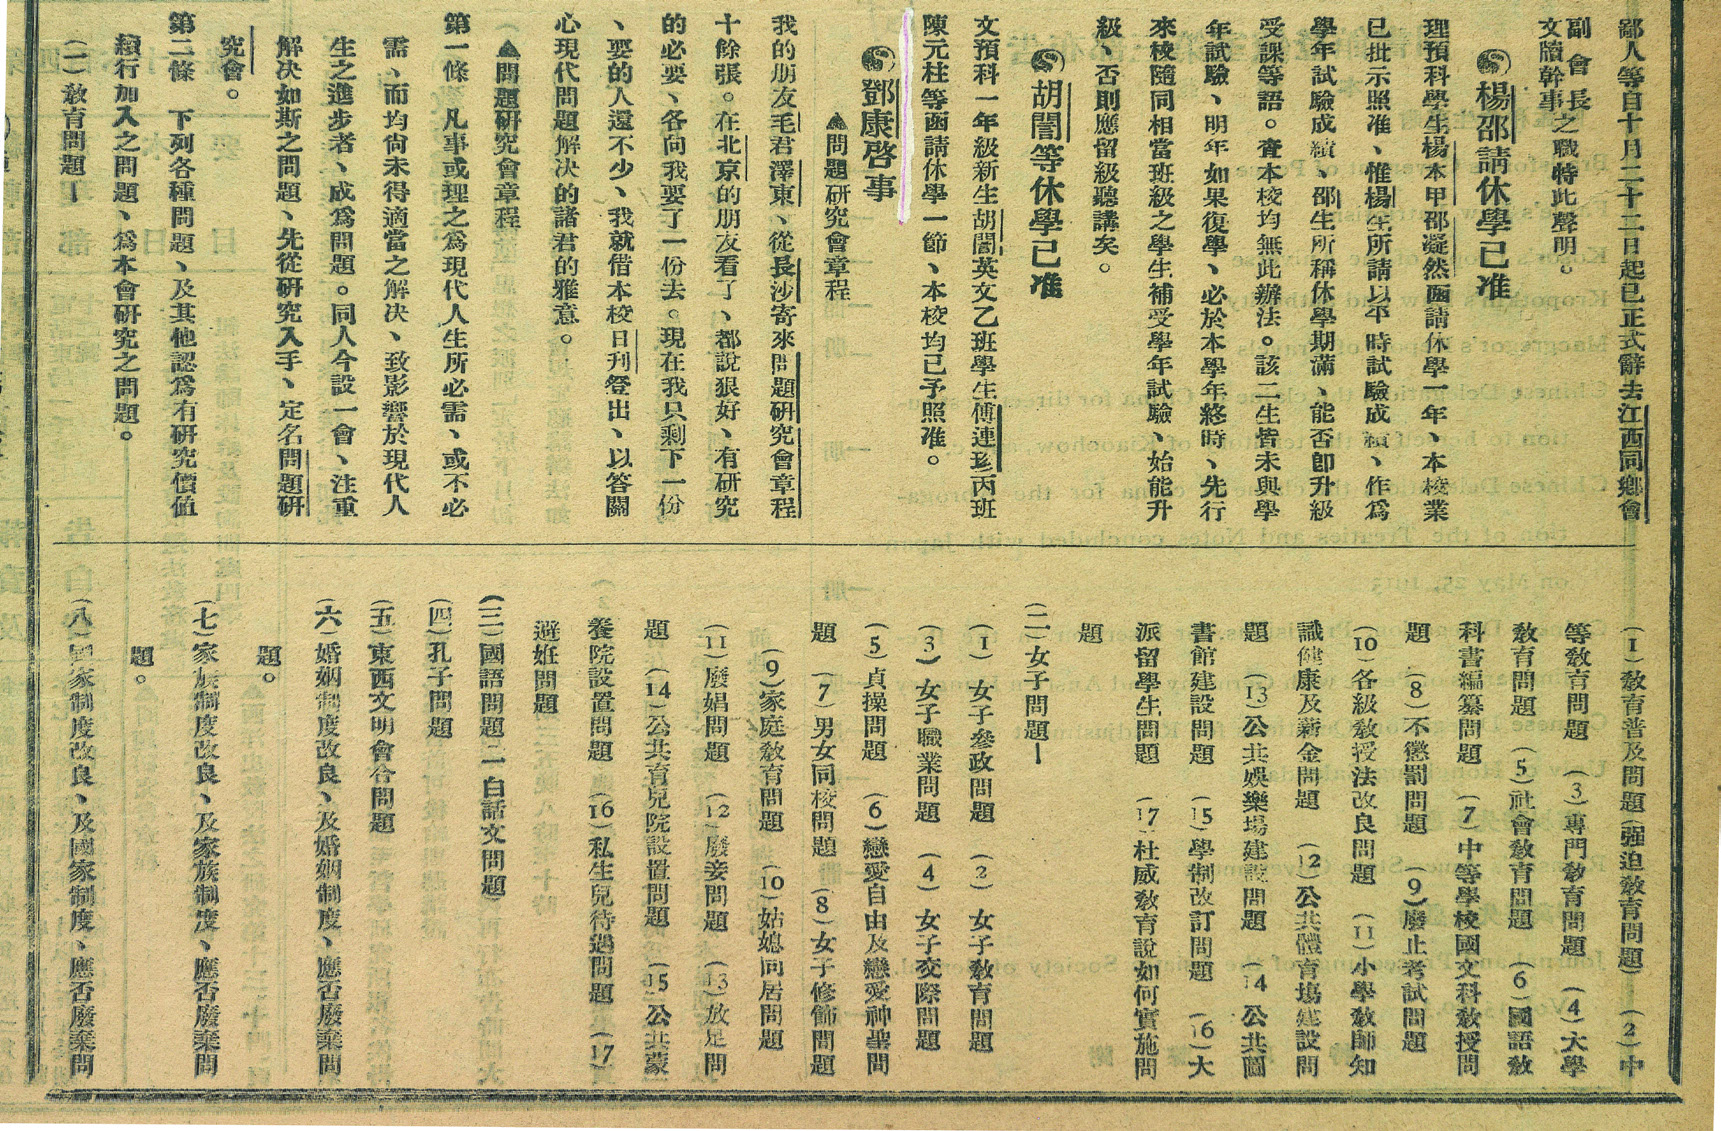 鄙人等自十月二十二日起已正式辭去江西同鄉會
副會長
文牘幹事之職特此聲明。
楊邵請休學已准
理預科學生楊本甲邵凝然函請休學一年、本校業
已批示照准、惟楊生所請以平時試驗成績、作爲
學年試驗成績、邵生所稱休學期滿、能否卽升級
受課等語。查本校均無此辦法。該二生皆未與學
年試驗、明年如果復學、必於本學年終時、先行
來校隨同相當班級之學生補受學年試驗、始能升
級、否則應留級聽講矣。
胡誾等休學已准
文預科一年級新生胡誾英文乙班學生傅連珍丙班
陳元柱等函請休學一節、本校均已予照准。
鄧康啓事
▲問題研究會章程
我的朋友毛君澤東、從長沙寄來問題研究會章程
十餘張。在北京的朋友看了、都說狠好、有研究
的必要、各向我要了一份去。現在我只剩下一份
、要的人還不少、我就借本校日刊登出、以答關
心現代問題解決的諸君的雅意。
▲問題研究會章程
第一條　凡事或理之爲現代人生所必需、或不必
需、而均尙未得適當之解决、致影響於現代人
生之進步者、成爲問題。同人今設一會、注重
解决如斯之問題、先從研究入手、定名問題研
究會。
第二條　下列各種問題、及其他認爲有研究價値
續行加入之問題、爲本會研究之問題。
(一)敎育問題—
(1)敎育普及問題(强迫敎育問題)　(2)中
等敎育問題　(3)專門敎育問題　(4)大學
敎育問題　(5)社會敎育問題　(6)國語敎
科書編纂問題　(7)中等學校國文科敎授問
題　(8)不懲罰問題　(9)廢止考試問題
(10)各級敎授法改良問題　(11)小學敎師知
識健康及薪金問題　(12)公共體育塲建設問
題　(13)公共娛樂塲建設問題　(14)公共圖
書館建設問題　(15)學制改訂問題　(16)大
派留學生問題　(17)杜威敎育說如何實施問
題
(二)女子問題—
(1)女子參政問題　(2)女子敎育問題
(3)女子職業問題　(4)女子交際問題
(5)貞操問題　(6)戀愛自由及戀愛神聖問
題　(7)男女同校問題　(8)女子修飾問題
(9)家庭敎育問題　(10)姑媳同居問題
(11)廢娼問題　(12)廢妾問題　(13)放足問
題　(14)公共育兒院設置問題　(15)公共蒙
養院設置問題　(16)私生兒待遇問題　(17)
避姙問題
(三)國語問題(白話文問題)
(四)孔子問題
(五)東西文明會合問題
(六)婚姻制度改良、及婚姻制度、應否廢棄問
題。
(七)家族制度改良、及家族制度、應否廢棄問
題。
(八)國家制度改良、及國家制度、應否廢棄問